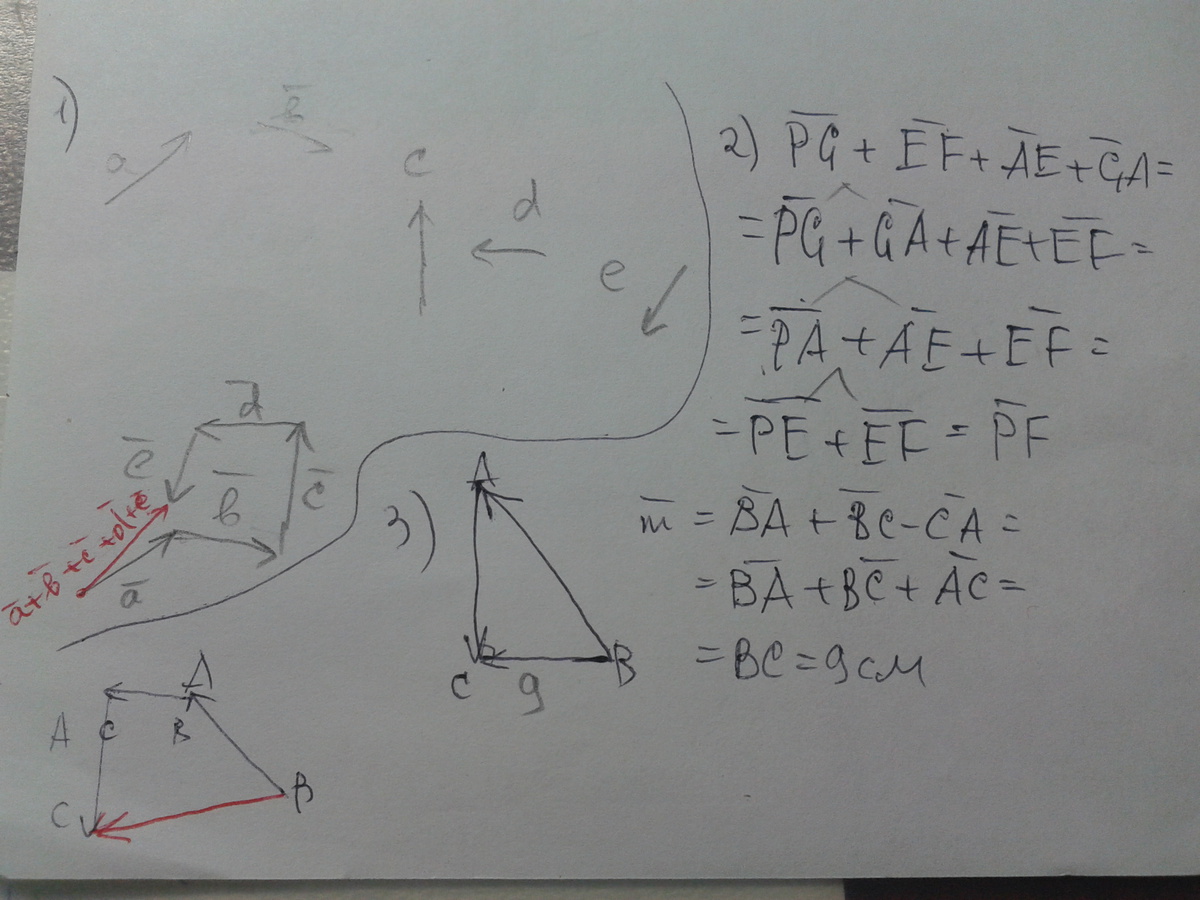 1)
a
b̅
c
d
e
d̅
e̅
b̅
c̅
a̅+b̅+c̅+d̅+e̅
a̅
2) P̅G̅ + E̅F̅ + A̅E̅ + G̅A̅ =
= P̅G̅ + G̅A̅ + A̅E̅ + E̅F̅ =
= P̅A̅ + A̅E̅ + E̅F̅ =
= P̅E̅ + E̅F̅ = P̅F̅
3)
A
C
9
B
m̅ = B̅A̅ + B̅C̅ - C̅A̅ =
= B̅A̅ + B̅C̅ + A̅C̅ =
= BC = 9см
A
A C B
C B